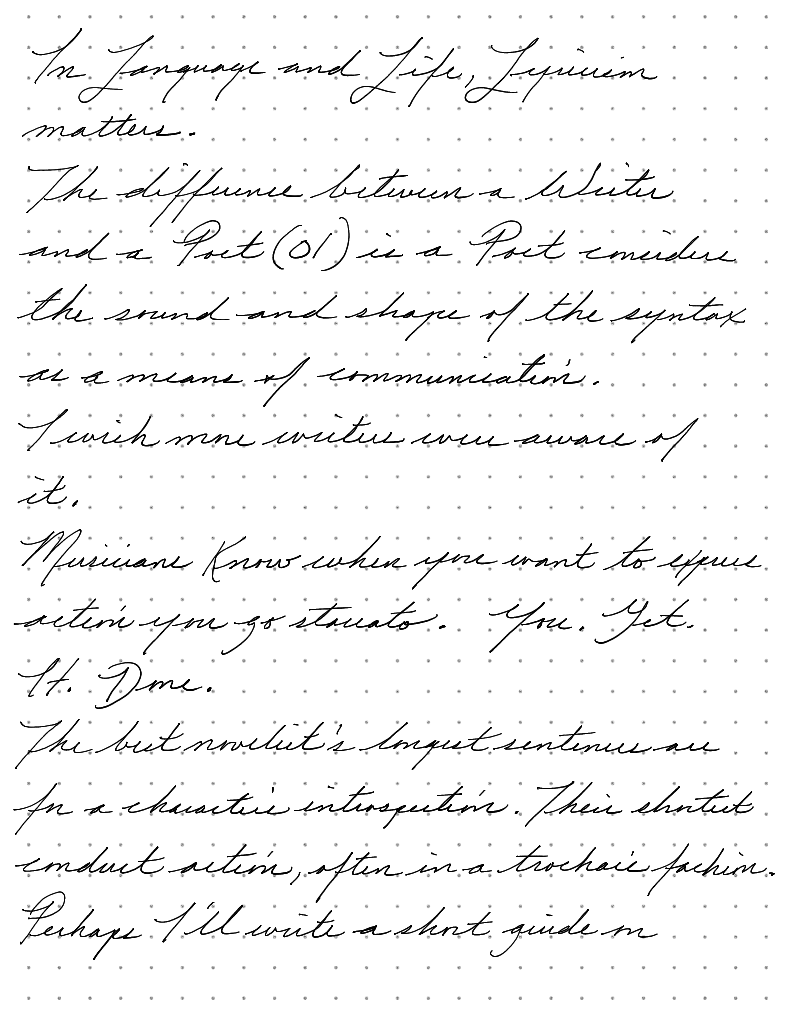 In Language and Life, Lyricism
matters.
The difference between a Writer
and a Poet (01) is a Poet considers
the sound and shape of the syntax
as a means of communication.
I wish more writers were aware of
it.
Musicians Know when you want to express
action you go staccato. You. Get.
It. Done.
The best novelist's longest sentences are
for a character's introspection. Their shortest
conduct action, often in a trochaic fashion.
Perhaps I'll write a short guide on